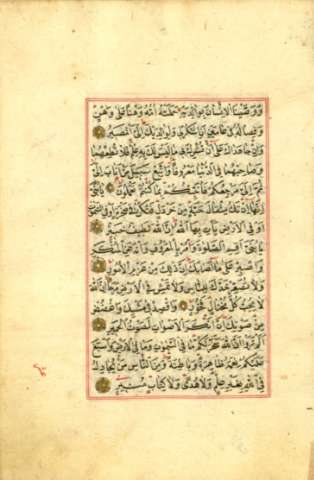 وَوَصَّيْنَا الْإِنْسَانَ بِوَالِدَيْهِ حَمَلَتْهُ أُمُّهُ وَهْنًا عَلَى وَهْنٍ
وَفِصَالُهُ فِي عَامَيْنِ أَنِ اشْكُرْ لِي وَلِوَالِدَيْكَ إِلَيَّ الْمَصِيرُ
وَإِنْ جَاهَدَاكَ عَلَى أَنْ تُشْرِكَ بِي مَا لَيْسَ لَكَ بِهِ عِلْمٌ فَلَا تُطِعْهُمَا
وَصَاحِبْهُمَا فِي الدُّنْيَا مَعْرُوفًا وَاتَّبِعْ سَبِيلَ مَنْ أَنَابَ إِلَيَّ
ثُمَّ إِلَيَّ مَرْجِعُكُمْ فَأُنَبِّئُكُمْ بِمَا كُنْتُمْ تَعْمَلُونَ يَا بُنَيَّ
إِنَّهَا إِنْ تَكُ مِثْقَالَ حَبَّةٍ مِنْ خَرْدَلٍ فَتَكُنْ فِي صَخْرَةٍ أَوْ فِي السَّمَوَاتِ
أَوْ فِي الْأَرْضِ يَأْتِ بِهَا اللَّهُ إِنَّ اللَّهَ لَطِيفٌ خَبِيرٌ
يَا بُنَيَّ أَقِمِ الصَّلَوةَ وَأْمُرْ بِالْمَعْرُوفِ وَانْهَ عَنِ الْمُنْكَرِ
وَاصْبِرْ عَلَى مَا أَصَابَكَ إِنَّ ذَلِكَ مِنْ عَزْمِ الْأُمُورِ
وَلَا تُصَعِّرْ خَدَّكَ لِلنَّاسِ وَلَا تَمْشِ فِي الْأَرْضِ مَرَحًا إِنَّ اللَّهَ
لَا يُحِبُّ كُلَّ مُخْتَالٍ فَخُورٍ وَاقْصِدْ فِي مَشْيِكَ وَاغْضُضْ
مِنْ صَوْتِكَ إِنَّ أَنْكَرَ الْأَصْوَاتِ لَصَوْتُ الْحَمِيرِ
أَلَمْ تَرَوْا أَنَّ اللَّهَ سَخَّرَ لَكُمْ مَا فِي السَّمَوَاتِ وَمَا فِي الْأَرْضِ وَأَسْبَغَ
عَلَيْكُمْ نِعَمَهُ ظَاهِرَةً وَبَاطِنَةً وَمِنَ النَّاسِ مَنْ يُجَادِلُ
فِي اللَّهِ بِغَيْرِ عِلْمٍ وَلَا هُدًى وَلَا كِتَابٍ مُنِيرٍ